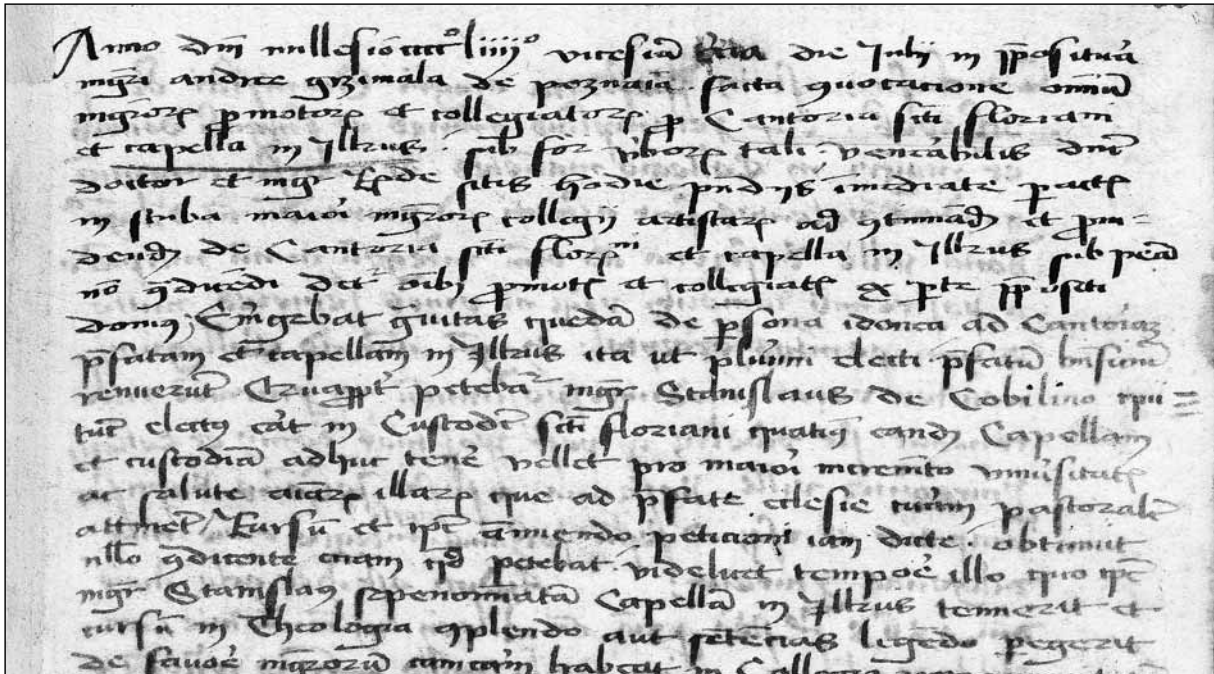 Anno dni millesio cccc° liiii° vicesia die Julii in ppositura
mgri andree grzimala de poznania facta quocacione omniu
mgroru pmotoru et collegiatoru p Cantoria scti floriani
et capella in Jltrus sub for vboru tali venerabilis dne
doctor et mgr sitis hodie pndiis imediate pacte
in stuba maiori mgroru collegii artistaru ad et pui=
dend de Cantoria scti flor et capella in Jltrus sub pena
no qdicedi oibus pmotis et collegiatis ex pte ppositi
domus Emgebat gvitas queda de psona idonea ad Cantoria
pfatam et capellam in Jltrus ita ut plurimi electi pfatu
renuerut petebatr mgr Stanislaus de Cobilino qui =
tuc electus erat in Custode scti floriani quatius eand Capellam
et custodia adhuc tene vellet pro maiori incremeto vniusitatis
ac salute aiaru illaru que ad pfate eclesie cura pastorale
attinet Eursu et ipe anuendo peticioni iam dicte obtinuit
nllo qdicente qd petebat videlicet tempore illo quo ipe
mgr Stanislaus spenominata Capella in Jltrus tenuerit et
cursu in Theologia qplendo aut setecias legedo pegerit
de favore mgroru habeat in Collegio